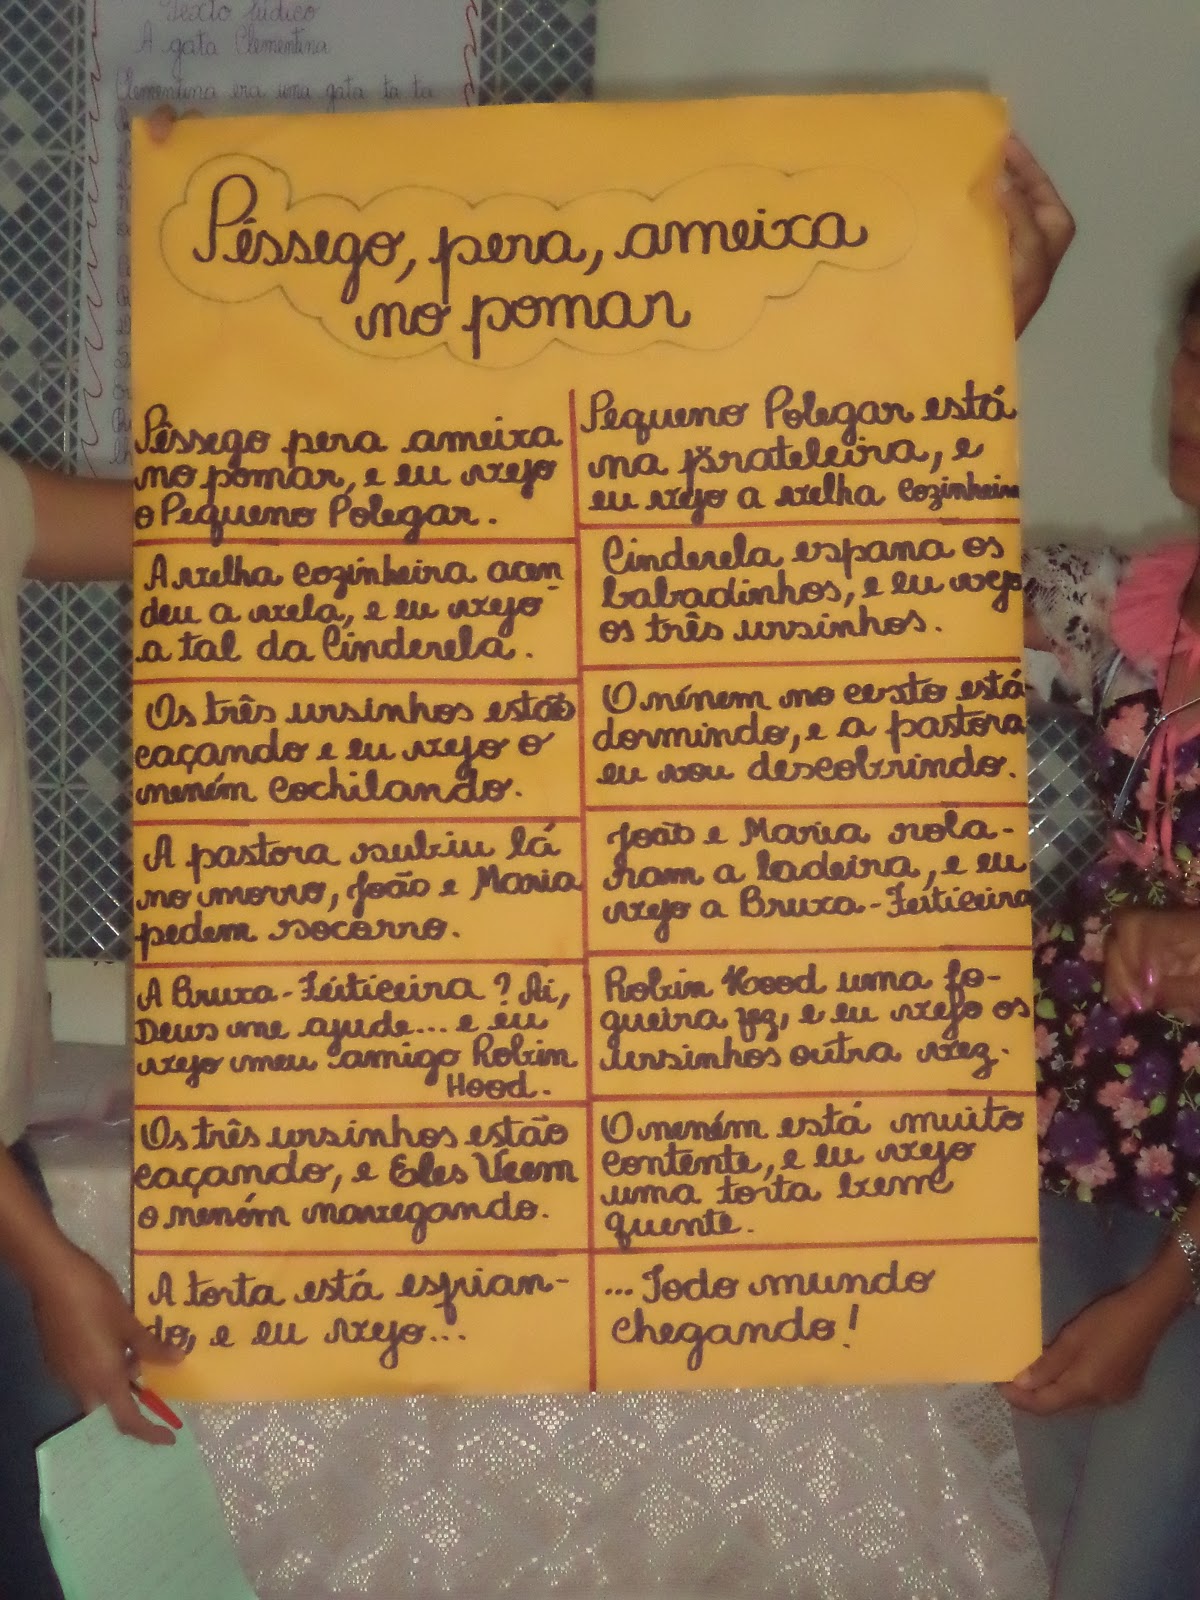 Texto lúdico
A gata Clementina
Clementina era uma gata ta ta
Pêssego, pera, ameixa
no pomar
Pêssego pera ameixa
no pomar, e eu vejo
o Pequeno Polegar.
Pequeno Polegar está
na prateleira, e
eu vejo a velha Cozinheira
A velha cozinheira acen-
deu a vela, e eu vejo
a tal da Cinderela.
Cinderela espana os
babadinhos, e eu vejo
os três ursinhos.
Os três ursinhos estão
caçando e eu vejo o
neném Cochilando.
O nínem no cexto está
dormindo, e a pastora
eu vou descobrindo.
A pastora subiu lá
no morro, João e Maria
pedem socorro.
João e Maria rola-
ram a ladeira, e eu
vejo a Bruxa-Feiticeira
A Bruxa-Feiticeira? Ai,
Deus me ajude... e eu
vejo meu amigo Robin
Hood.
Robin Hood uma fo-
gueira fez, e eu vejo os
ursinhos outra vez.
Os três ursinhos estão
caçando, e Eles Veem
o neném navegando.
O neném está muito
contente, e eu vejo
uma torta bem
quente.
A torta está esfrian-
do, e eu vejo...
...Todo mundo
chegando!